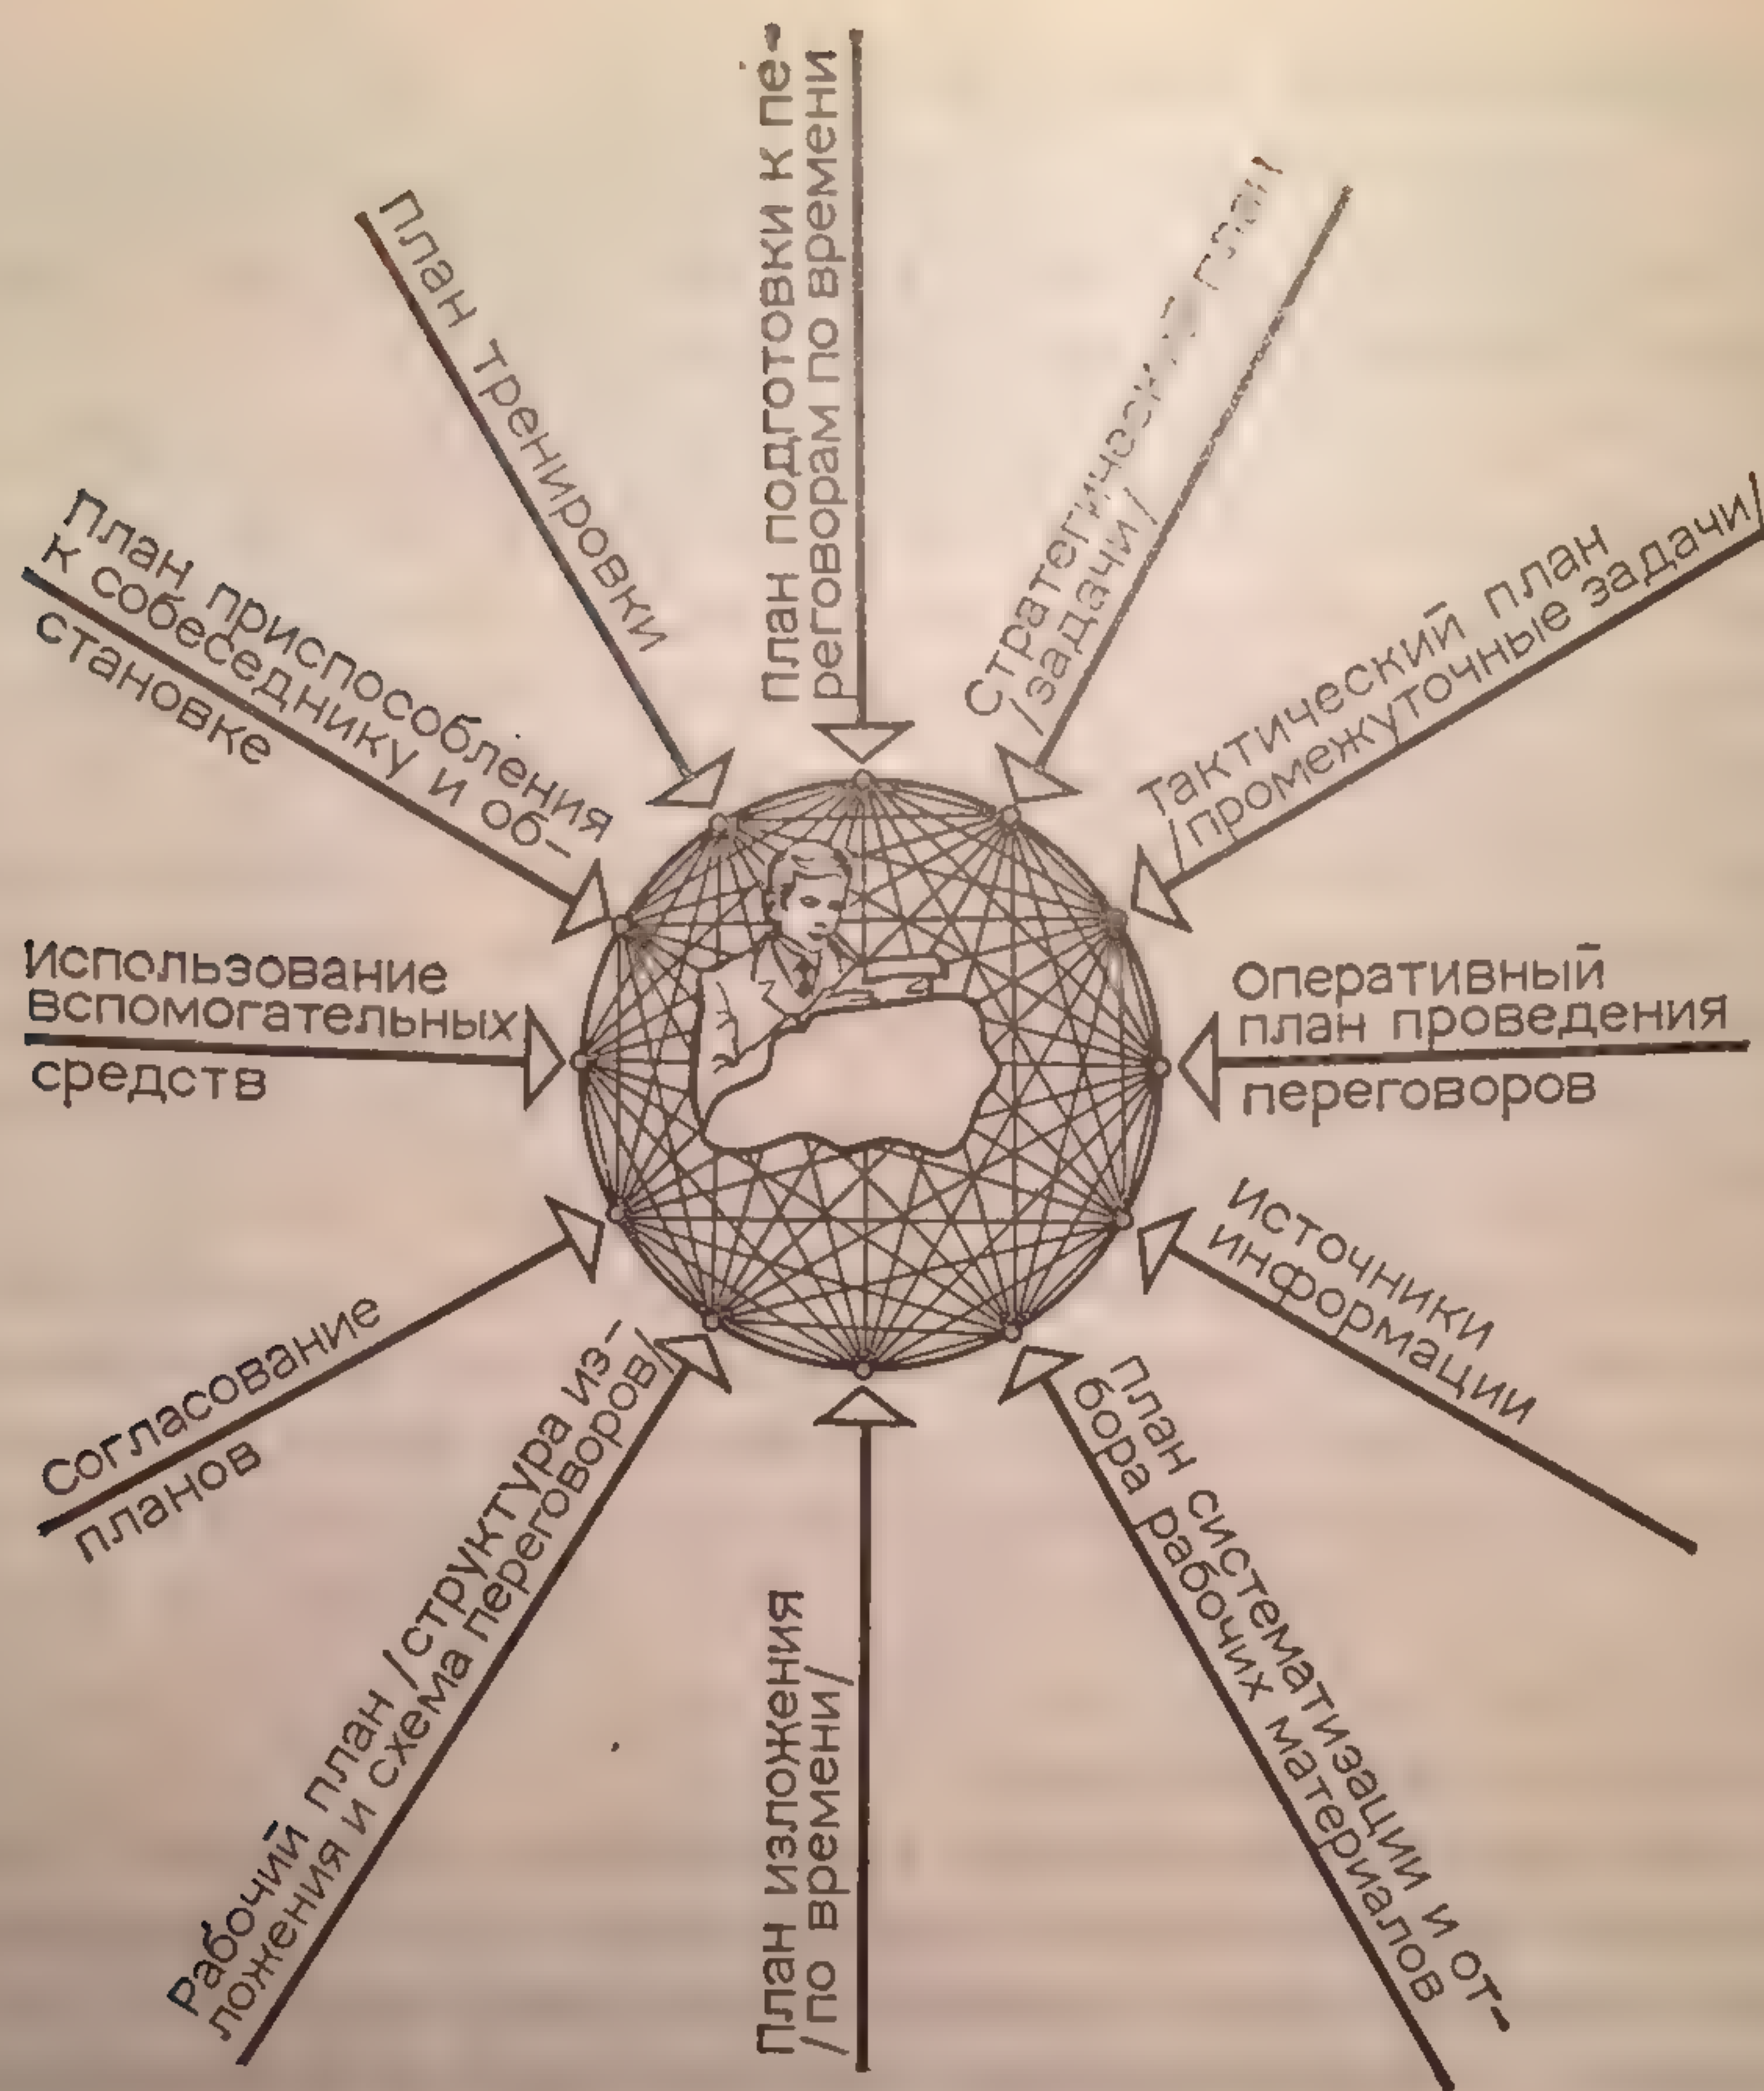 План подготовки к пе-
реговорам по времени
Стратегический план
/задачи/
Тактический план
/промежуточные задачи/
Оперативный
план проведения
переговоров
Источники
информации
План систематизации и от-
бора рабочих материалов
План изложения
/по времени/
Рабочий план /структура из-
ложения и схема переговоров/
Согласование
планов
Использование
вспомогательных
средств
План приспособления
к собеседнику и об-
становке
План тренировки